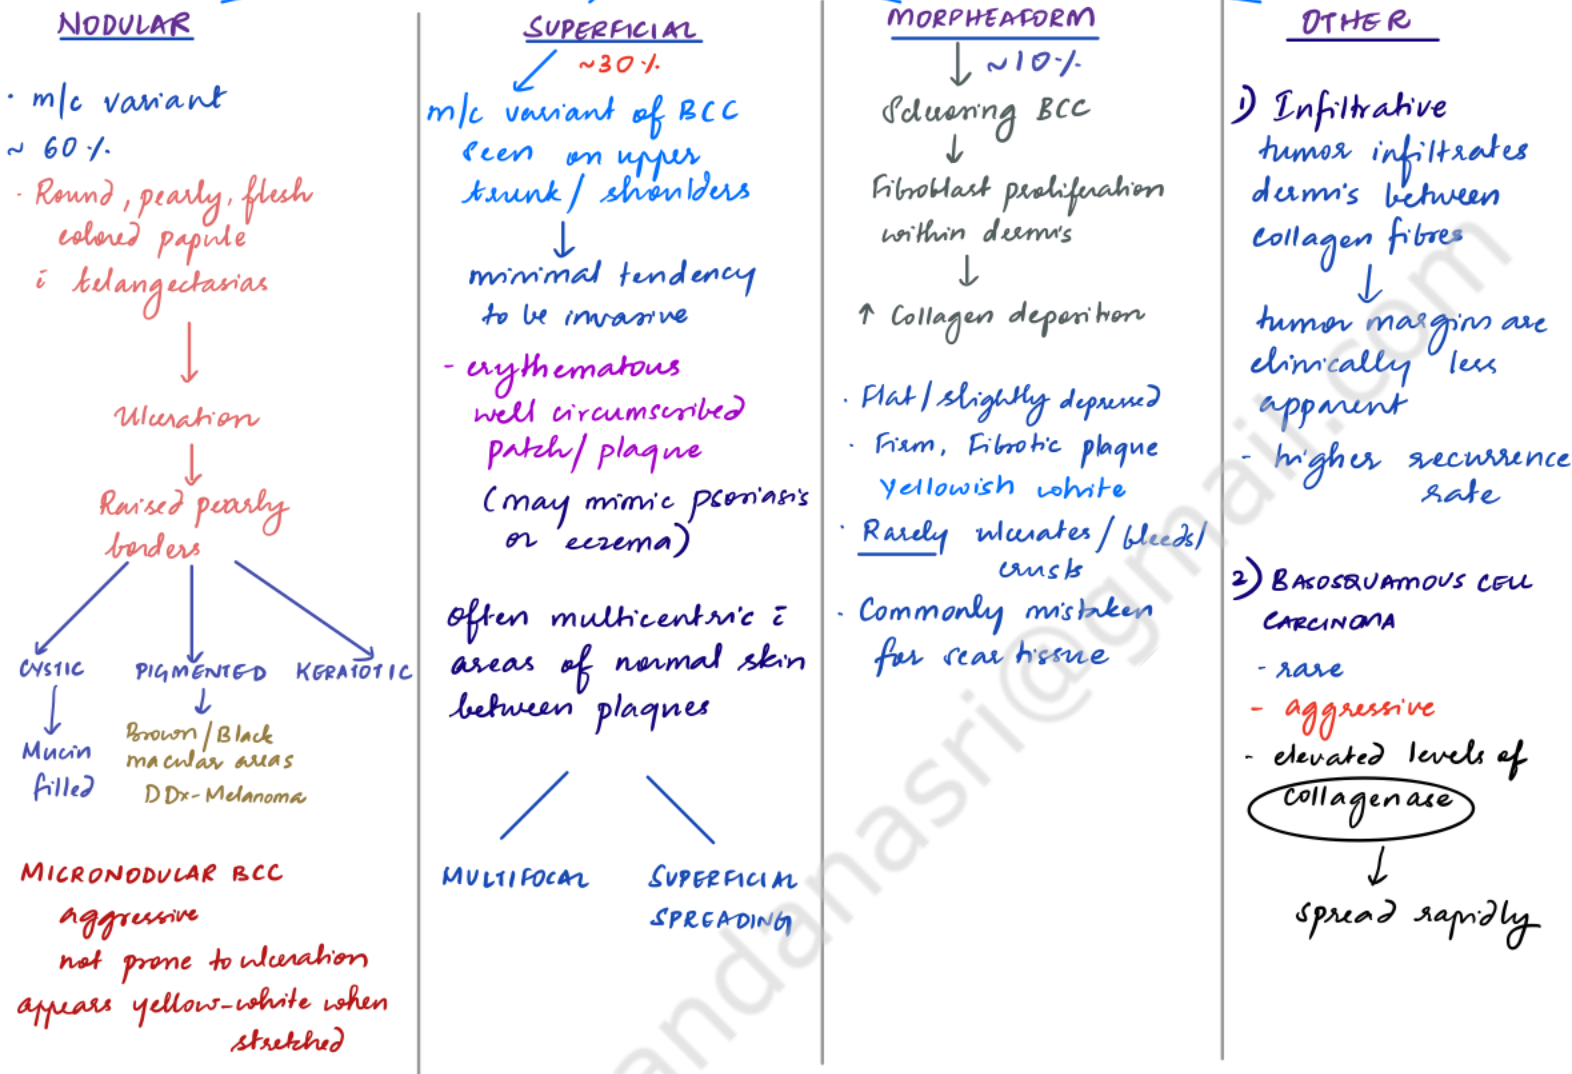 NODULAR
· m/c variant
~ 60 %
- Round, pearly, flesh
colored papule
c̄ telangectasias
Ulceration
Raised pearly
borders
CYSTIC
PIGMENTED
KERATOTIC
Mucin
filled
Brown/Black
macular areas
DDx-Melanoma
MICRONODULAR BCC
aggressive
not prone to ulceration
appears yellow-white when
stretched
SUPERFICIAL
~30 %
m/c variant of BCC
seen on upper
trunk/ shoulders
minimal tendency
to be invasive
- erythematous
well circumscribed
patch/ plaque
(may mimic psoriasis
or eczema)
often multicentric c̄
areas of normal skin
between plaques
MULTIFOCAL
SUPERFICIAL
SPREADING
MORPHEAFORM
~10 %
Sclerosing BCC
Fibroblast proliferation
within dermis
↑ Collagen deposition
· Flat/ slightly depressed
· Firm, Fibrotic plaque
yellowish white
· Rarely ulcerates/ bleeds/
crusts
· Commonly mistaken
for scar tissue
OTHER
1) Infiltrative
tumor infiltrates
dermis between
collagen fibres
tumor margins are
clinically less
apparent
- higher recurrence
rate
2) BASOSQUAMOUS CELL
CARCINOMA
- rare
- aggressive
- elevated levels of
collagenase
spread rapidly
andanasri@gmail.com